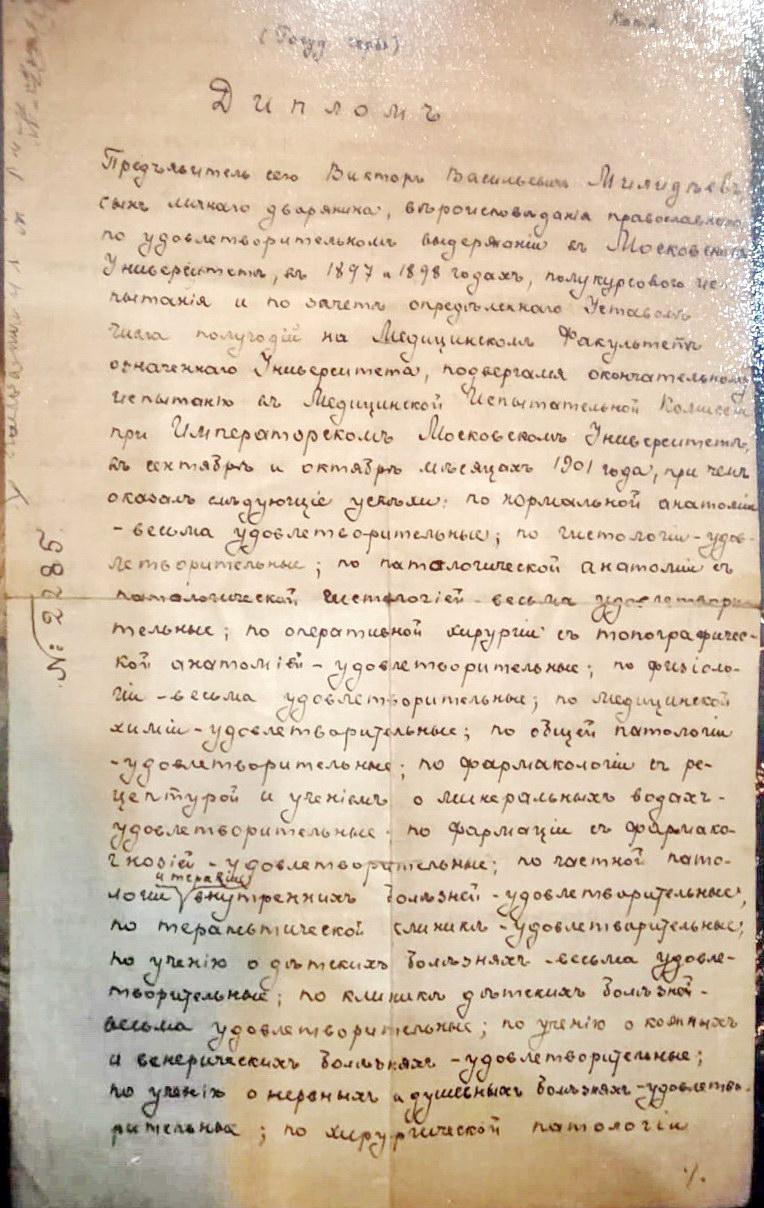 Копія
(Госуд. гербъ)
Дипломъ
Предъявитель сего Викторъ Васильевичъ
сынъ личнаго дворянина, вѣроисповѣданія православнаго
по удовлетворительномъ выдержаніи въ Московскомъ
Университетѣ, въ 1897 и 1898 годахъ, полукурсового ис-
пытанія и по зачетѣ опредѣленнаго Уставомъ
числа полугодій на Медицинскомъ Факультетѣ
означеннаго Университета, подвергался окончательному
испытанію въ Медицинской Испытательной Комиссіи
при Императорскомъ Московскомъ Университетѣ,
въ сентябрѣ и октябрѣ мѣсяцахъ 1901 года, при чемъ
оказалъ слѣдующіе успѣхи: по нормальной анатоміи
- весьма удовлетворительные; по гистологіи - удов-
летворительные; по паталогической анатоміи съ
паталогической гистологіей - весьма удовлетвори-
тельные; по оперативной хирургіи съ топографичес-
кой анатоміей - удовлетворительные; по физіоло-
гіи - весьма удовлетворительные; по медицинской
химіи - удовлетворительные; по общей патологіи
- удовлетворительные; по фармакологіи съ ре-
цептурой и ученіемъ о минеральныхъ водахъ -
удовлетворительные; по фармаціи съ фармако-
гнозіей - удовлетворительные; по частной пато-
и терапіи
логіи внутреннихъ болѣзней - удовлетворительные;
по терапевтической клиникѣ - удовлетворительные;
по ученію о дѣтскихъ болѣзняхъ - весьма удовле-
творительные; по клиникѣ дѣтскихъ болѣзней -
весьма удовлетворительные; по ученію о кожныхъ
и венерическихъ болѣзняхъ - удовлетворительные;
по ученію о нервныхъ и душевныхъ болѣзняхъ - удовлетво-
рительные; по хирургической патологіи
№ 2285.